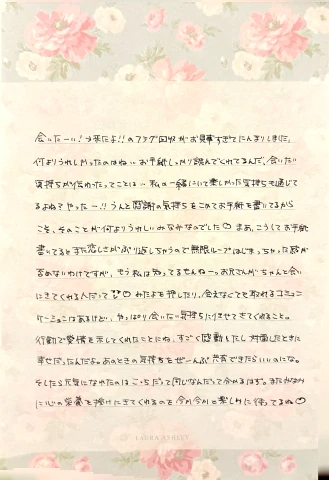 会いたーい!って来たよ!!のフラグ回収がお見事すぎてにんまりしました。
何よりうれしかったのはね… お手紙しっかり読んでくれてるんだ、会いたい
気持ちが伝わったってことは… 私の一緒にいて楽しかった気持ちも通じて
るよね? やったー!! うんと感謝の気持ちをこめてお手紙を書いてるから
こそ、そのことが何よりうれしいみなみなのでした♡ まあ、こうしてお手紙
書いてるとまた恋しさがぶり返しちゃうので無限ループはじまっちゃった感が
否めないわけですが、もう私は知ってるもんねーっお兄さんがちゃんと会い
にきてくれる人だって みたよを押したり、会えなくてても取れるコミュニ
ケーションはあるけど、やっぱり会いたい気持ちにまかせてきてくれること。
行動で愛情を示してくれたことにね、すごく感動したし対面したときに
幸せだったんだよ。あのときの気持ちをぜーんぶ共有できたらいいのにな。
そしたら元気になれたのはこっちだって同じなんだって分かるはず。またみなみ
に心の栄養を授けにきてくれるのを今か今かと楽しみに待ってるね♡
LAURA ASHLEY